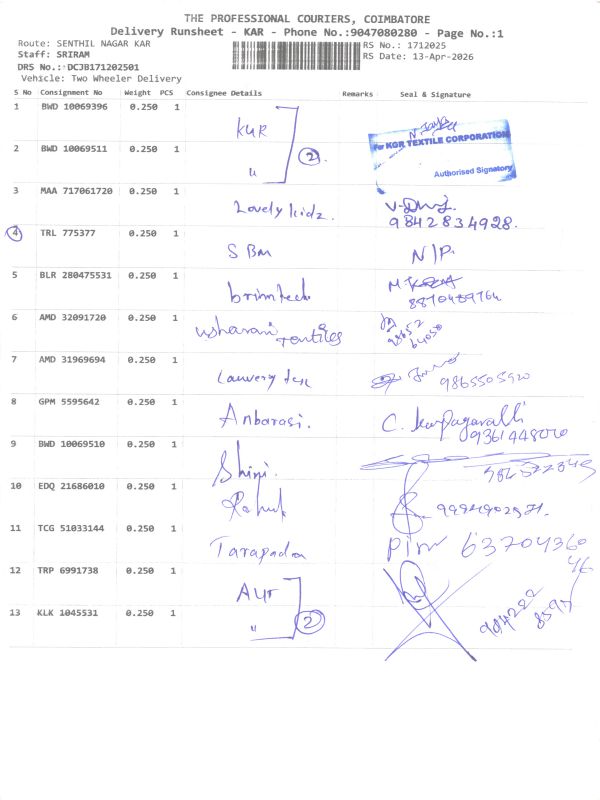 THE PROFESSIONAL COURIERS, COIMBATORE
Delivery Runsheet - KAR - Phone No.:9047080280 - Page No.:1
Route: SENTHIL NAGAR KAR RS No.: 1712025
Staff: SRIRAM RS Date: 13-Apr-2026
DRS No.: DCJB171202501
Vehicle: Two Wheeler Delivery
S No Consignment No Weight PCS Consignee Details Remarks Seal & Signature
1 BWD 10069396 0.250 1 KGR
For KGR TEXTILE CORPORATION
2 BWD 10069511 0.250 1 " 2
Authorised Signatory
3 MAA 717061720 0.250 1 Lovely kidz 9842834928
4 TRL 775377 0.250 1 SBM N/P.
5 BLR 280475531 0.250 1 brimteck
6 AMD 32091720 0.250 1 usharani textiles 98652 64050
7 AMD 31969694 0.250 1 9865505920
8 GPM 5595642 0.250 1 Anbarasi. C. karpagavalli
9 BWD 10069510 0.250 1 Shini
10 EDQ 21686010 0.250 1 Rahul
11 TCG 51033144 0.250 1 Tarapada 63704360 46
12 TRP 6991738 0.250 1
13 KLK 1045531 0.250 1 " 2